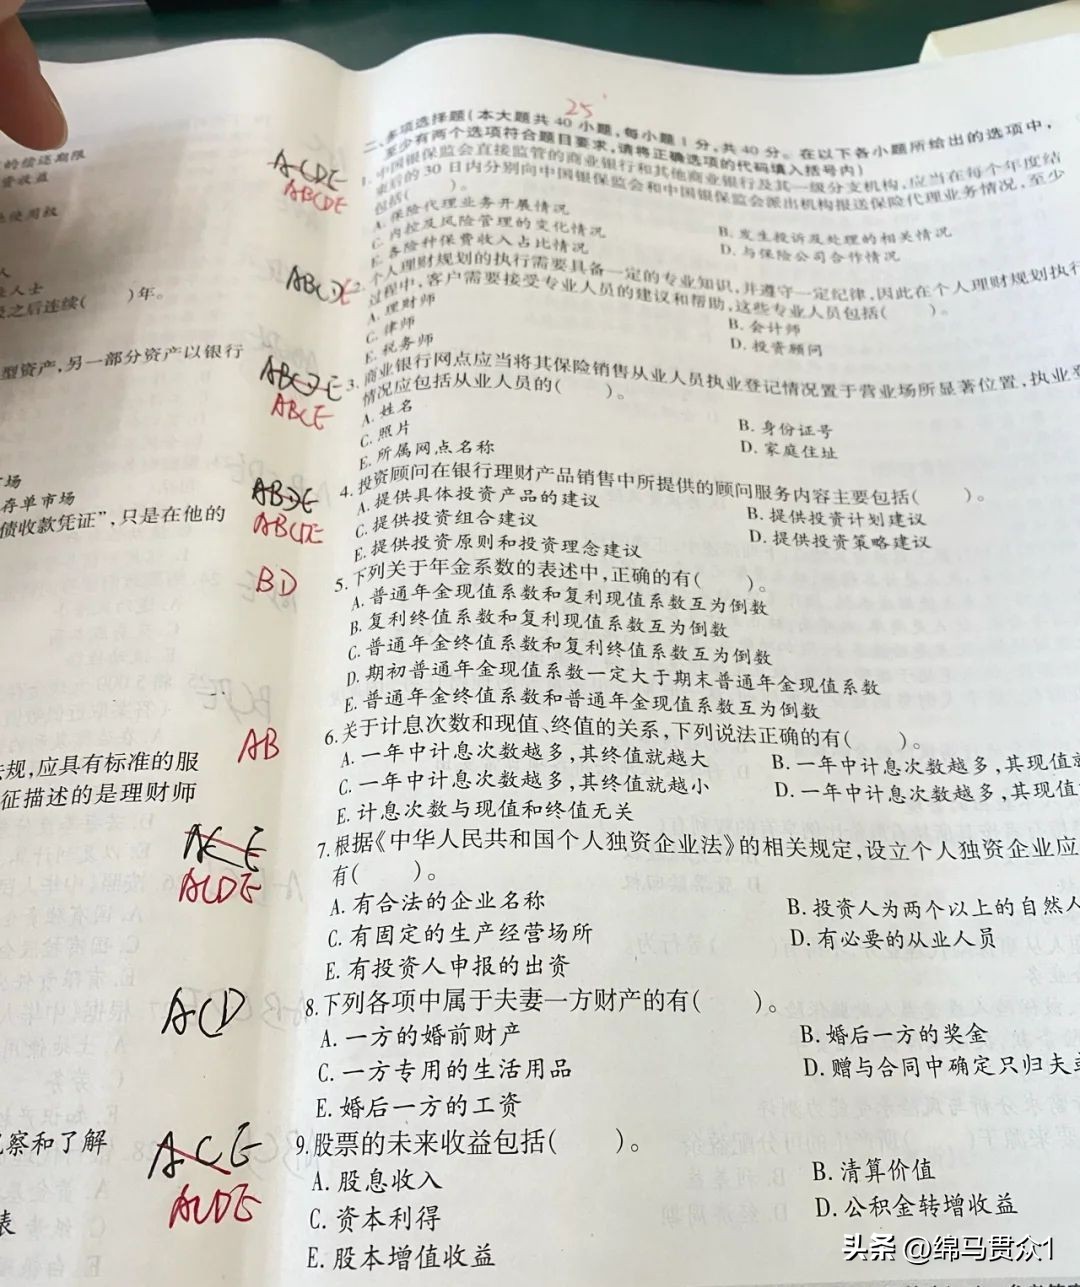 的偿还期限
费收益
地使用权
人
业人士
之后连续(　　)年。
型资产,另一部分资产以银行
市场
存单市场
债收款凭证”,只是在他的
法规,应具有标准的服
征描述的是理财师
观察和了解
表
25
二、多项选择题(本大题共 40 小题,每小题 1 分,共 40 分。在以下各小题所给出的选项中,
至少有两个选项符合题目要求,请将正确选项的代码填入括号内)
ACDE
ABCDE
1.中国银保监会直接监管的商业银行和其他商业银行及其一级分支机构,应当在每个年度结
束后的 30 日内分别向中国银保监会和中国银保监会派出机构报送保险代理业务情况,至少
包括(　　)。
A.保险代理业务开展情况
B.发生投诉及处理的相关情况
C.内控及风险管理的变化情况
D.与保险公司合作情况
E.各险种保费收入占比情况
ABCDE
2.个人理财规划的执行需要具备一定的专业知识,并遵守一定纪律,因此在个人理财规划执行
过程中,客户需要接受专业人员的建议和帮助,这些专业人员包括(　　)。
A.理财师
B.会计师
C.律师
D.投资顾问
E.税务师
ABCDE
ABCE
3.商业银行网点应当将其保险销售从业人员执业登记情况置于营业场所显著位置,执业登
情况应包括从业人员的(　　)。
A.姓名
B.身份证号
C.照片
D.家庭住址
E.所属网点名称
ABDE
ABCDE
4.投资顾问在银行理财产品销售中所提供的顾问服务内容主要包括(　　)。
A.提供具体投资产品的建议
B.提供投资计划建议
C.提供投资组合建议
D.提供投资策略建议
E.提供投资原则和投资理念建议
BD
5.下列关于年金系数的表述中,正确的有(　　)。
A.普通年金现值系数和复利现值系数互为倒数
B.复利终值系数和复利现值系数互为倒数
C.普通年金终值系数和复利终值系数互为倒数
D.期初普通年金现值系数一定大于期末普通年金现值系数
E.普通年金终值系数和普通年金现值系数互为倒数
AB
6.关于计息次数和现值、终值的关系,下列说法正确的有(　　)。
A.一年中计息次数越多,其终值就越大
B.一年中计息次数越多,其现值
C.一年中计息次数越多,其终值就越小
D.一年中计息次数越多,其现值
E.计息次数与现值和终值无关
ACE
ACDE
7.根据《中华人民共和国个人独资企业法》的相关规定,设立个人独资企业应
有(　　)。
A.有合法的企业名称
B.投资人为两个以上的自然人
C.有固定的生产经营场所
D.有必要的从业人员
E.有投资人申报的出资
ACD
8.下列各项中属于夫妻一方财产的有(　　)。
A.一方的婚前财产
B.婚后一方的奖金
C.一方专用的生活用品
D.赠与合同中确定只归夫或
E.婚后一方的工资
ACE
ACDE
9.股票的未来收益包括(　　)。
A.股息收入
B.清算价值
C.资本利得
D.公积金转增收益
E.股本增值收益
头条 @绵马贯众1